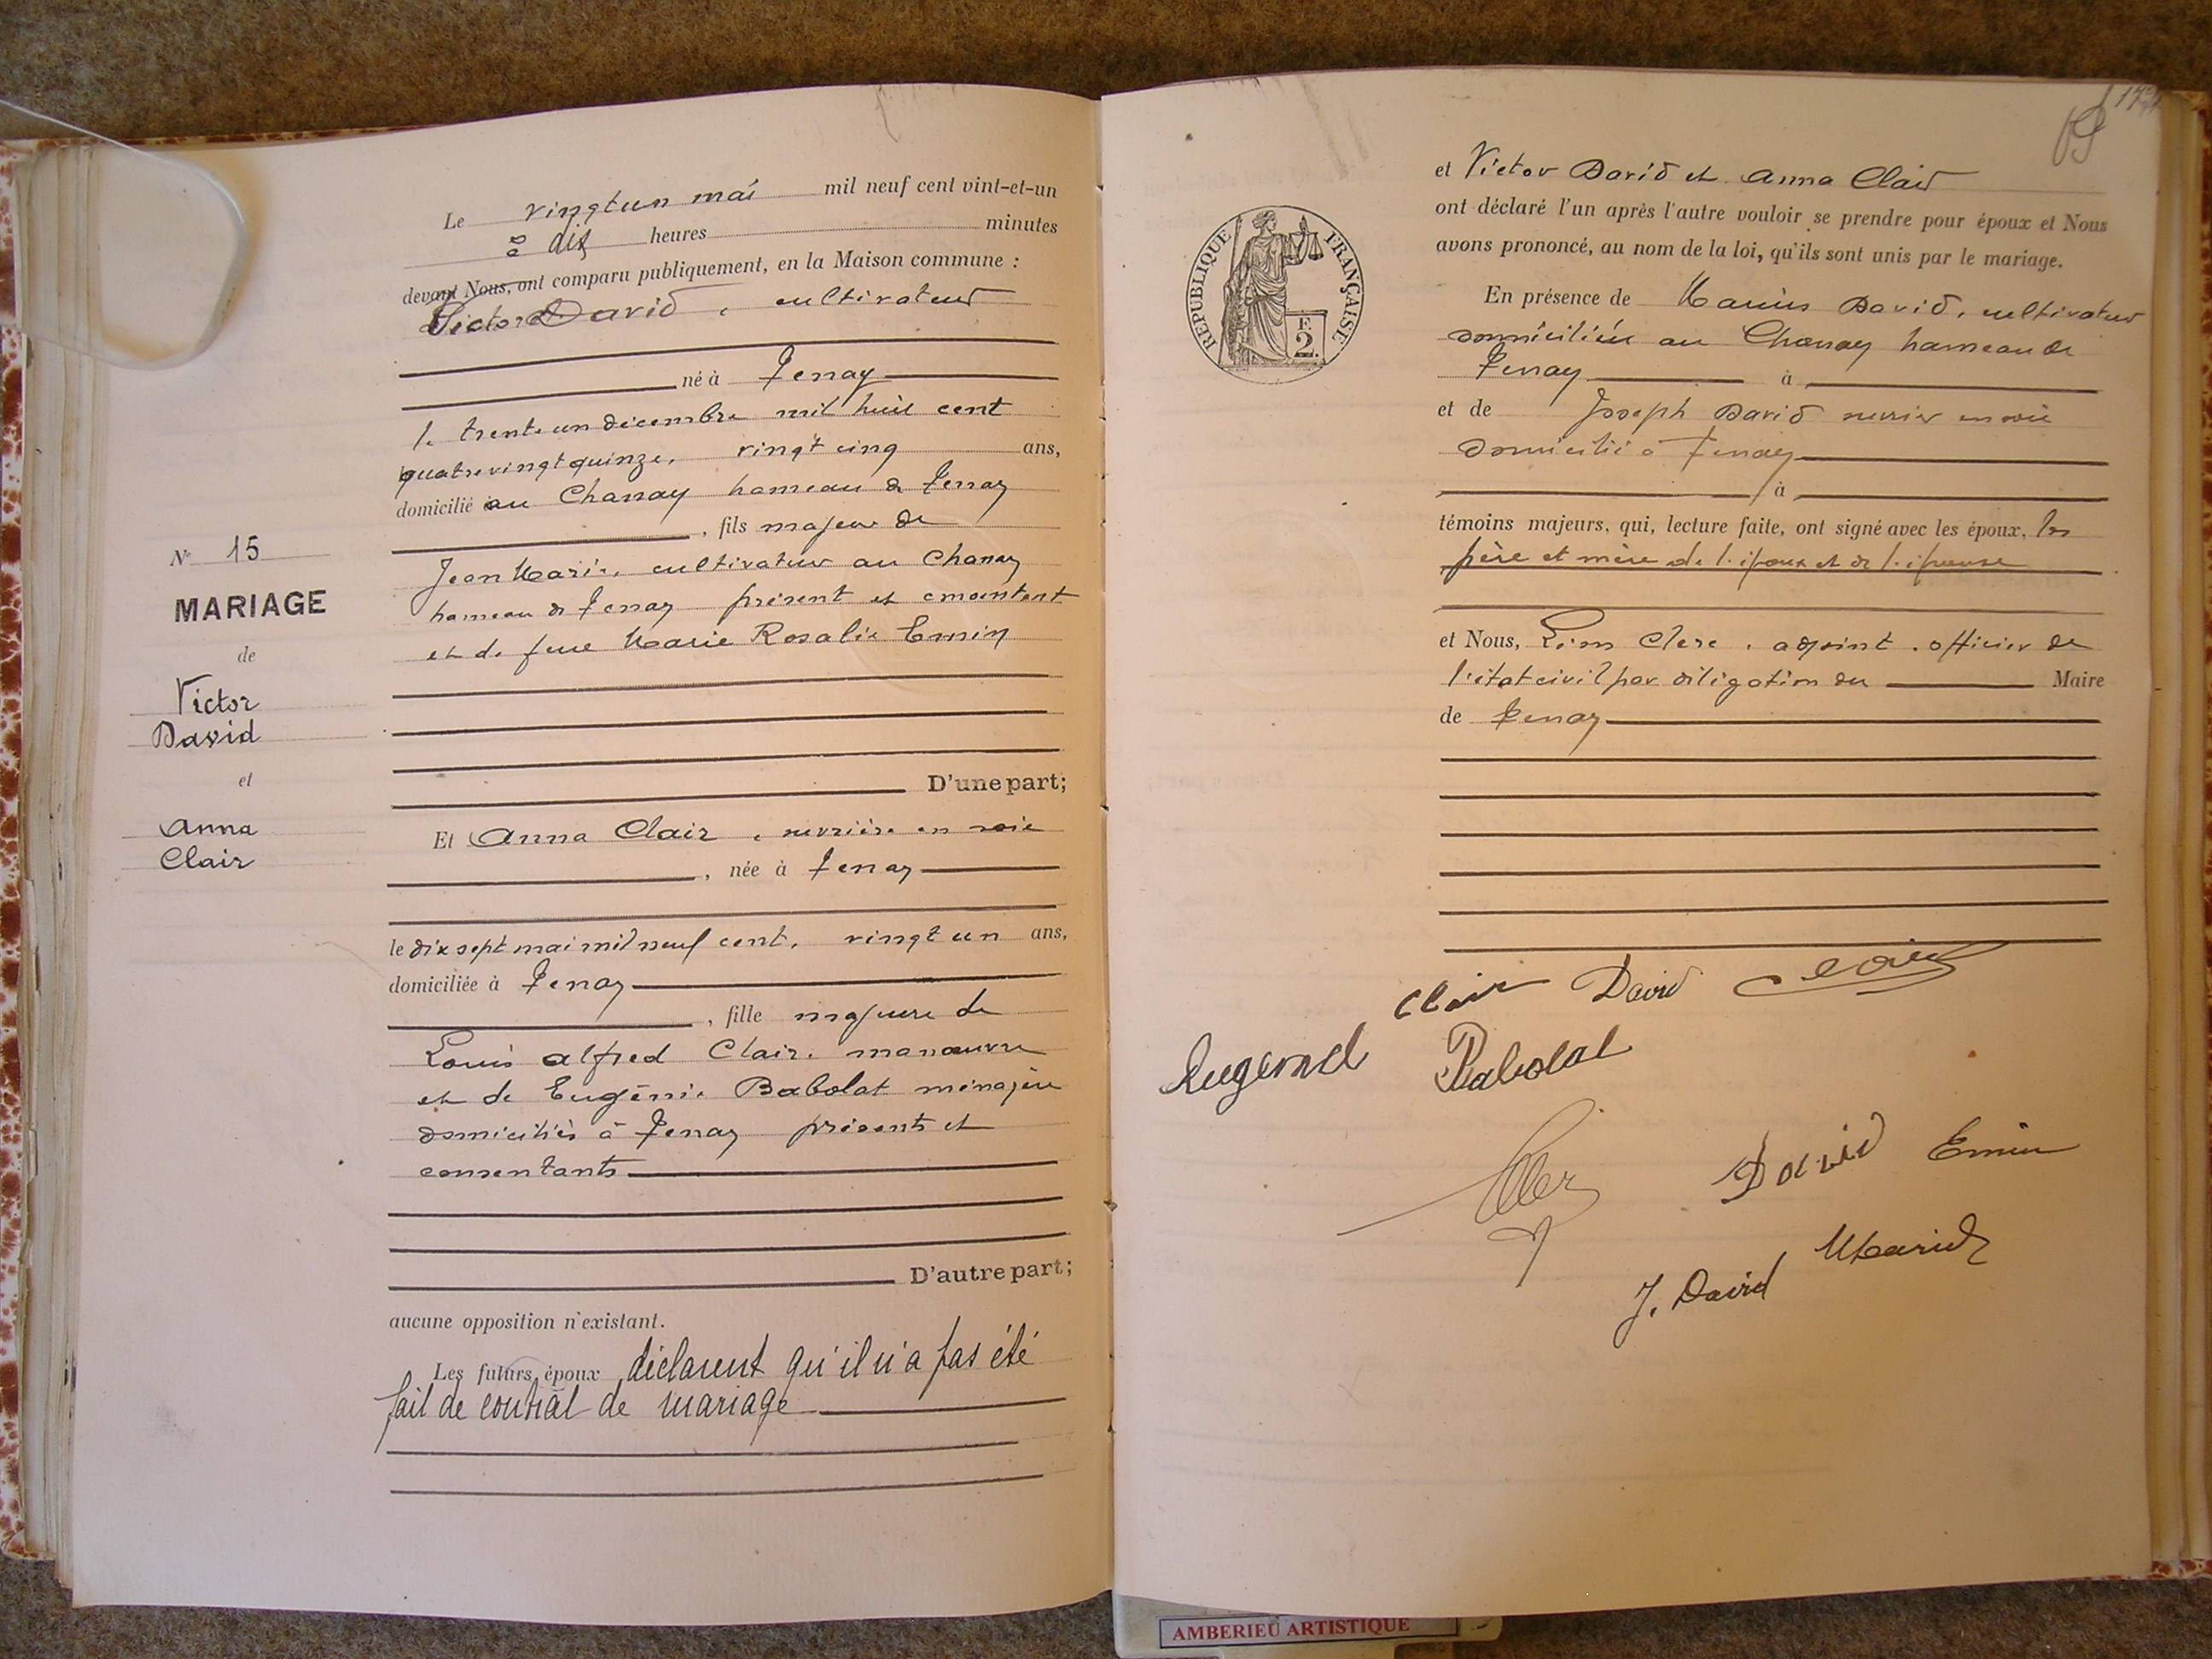 Le vingt un mai mil neuf cent vint-et-un
à dix heures minutes
devant Nous, ont comparu publiquement, en la Maison commune :
Victor David, cultivateur
né à Tenay
le trente un décembre mil huit cent
quatre vingt quinze, vingt cinq ans,
domicilié au Chanay hameau de Tenay
, fils majeur de
Jean Marie, cultivateur au Chanay
hameau de Tenay présent et
et de feue Marie Rosalie Emin
D'une part;
N° 15
MARIAGE
de
Victor
David
et
Anna
Clair
Et Anna Clair, ouvrière en soie
, née à Tenay
le dix sept mai mil neuf cent, vingt un ans,
domiciliée à Tenay
, fille majeure de
Louis Alfred Clair, manœuvre
et de Eugénie Babolat ménagère
domiciliés à Tenay présents et
consentants
D'autre part;
aucune opposition n'existant.
Les futurs époux déclarent qu'il n'a pas été
fait de contrat de mariage
et Victor David et Anna Clair
ont déclaré l'un après l'autre vouloir se prendre pour époux et Nous
avons prononcé, au nom de la loi, qu'ils sont unis par le mariage.
REPUBLIQUE FRANÇAISE
F.
2.
En présence de Marius David, cultivateur
domicilié au Chanay hameau de
Tenay à
et de Joseph David ouvrier en soie
domicilié à Tenay
à
témoins majeurs, qui, lecture faite, ont signé avec les époux, les
père et mère de l'époux et de l'épouse
et Nous, Léon Clerc, adjoint, officier de
l'état civil par délégation du Maire
de Tenay
Clair David Clair
Babolat
David Emin
Marius
J. David
AMBERIEU ARTISTIQUE